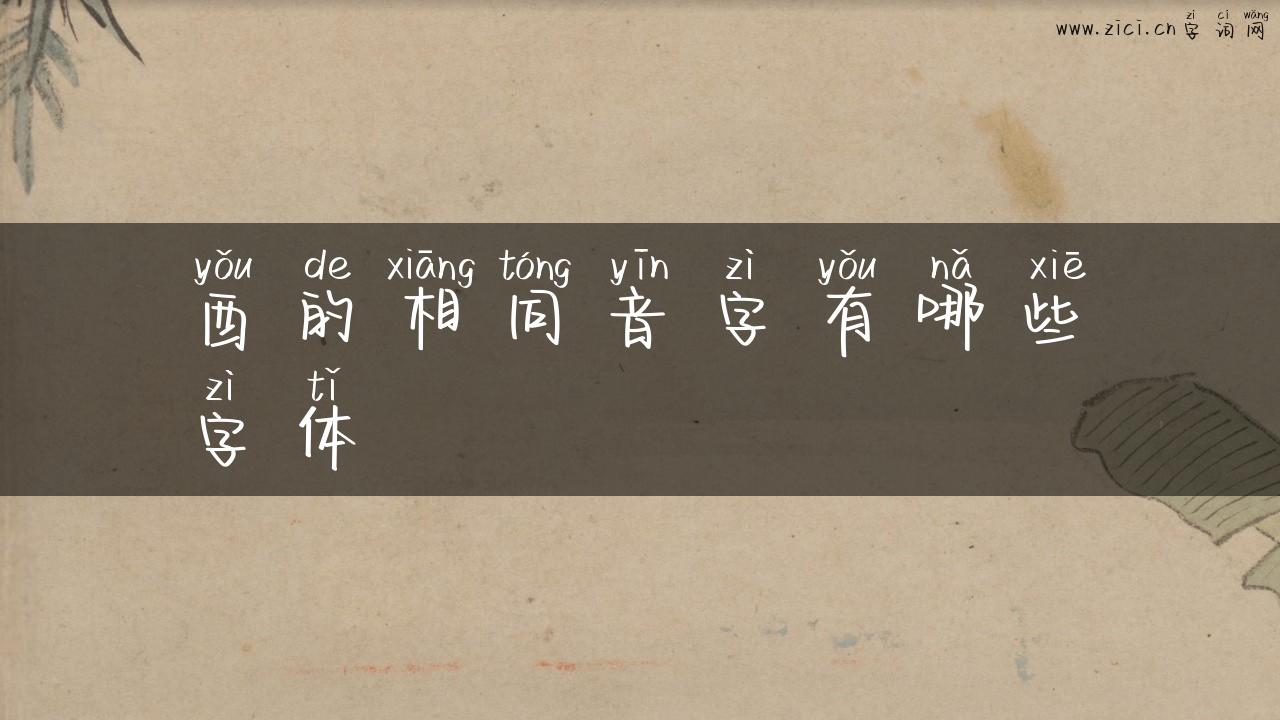 zì cí wǎng
www.zici.cn 字词网
yǒu de xiāng tóng yīn zì yǒu nǎ xiē
酉的相同音字有哪些
zì tǐ
字体